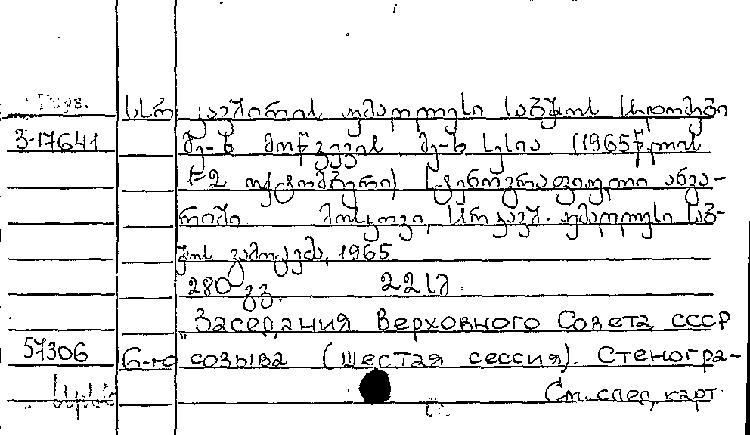 სსრ კავშირის უმაღლესი საბჭოს სხდომები
3-17641 მე-6 მოწვევის მე-6 სესია (1965 წლის
1-2 ოქტომბერი) სტენოგრაფიული ანგა-
რიში მოსკოვი, სსრ კავშ. უმაღლესი საბ-
ჭოს გამოცემა, 1965
280 გვ. 22 სმ.
Заседания Верховного Совета СССР
57306 6-го созыва (шестая сессия). Стеногра-
См. спец. карт.